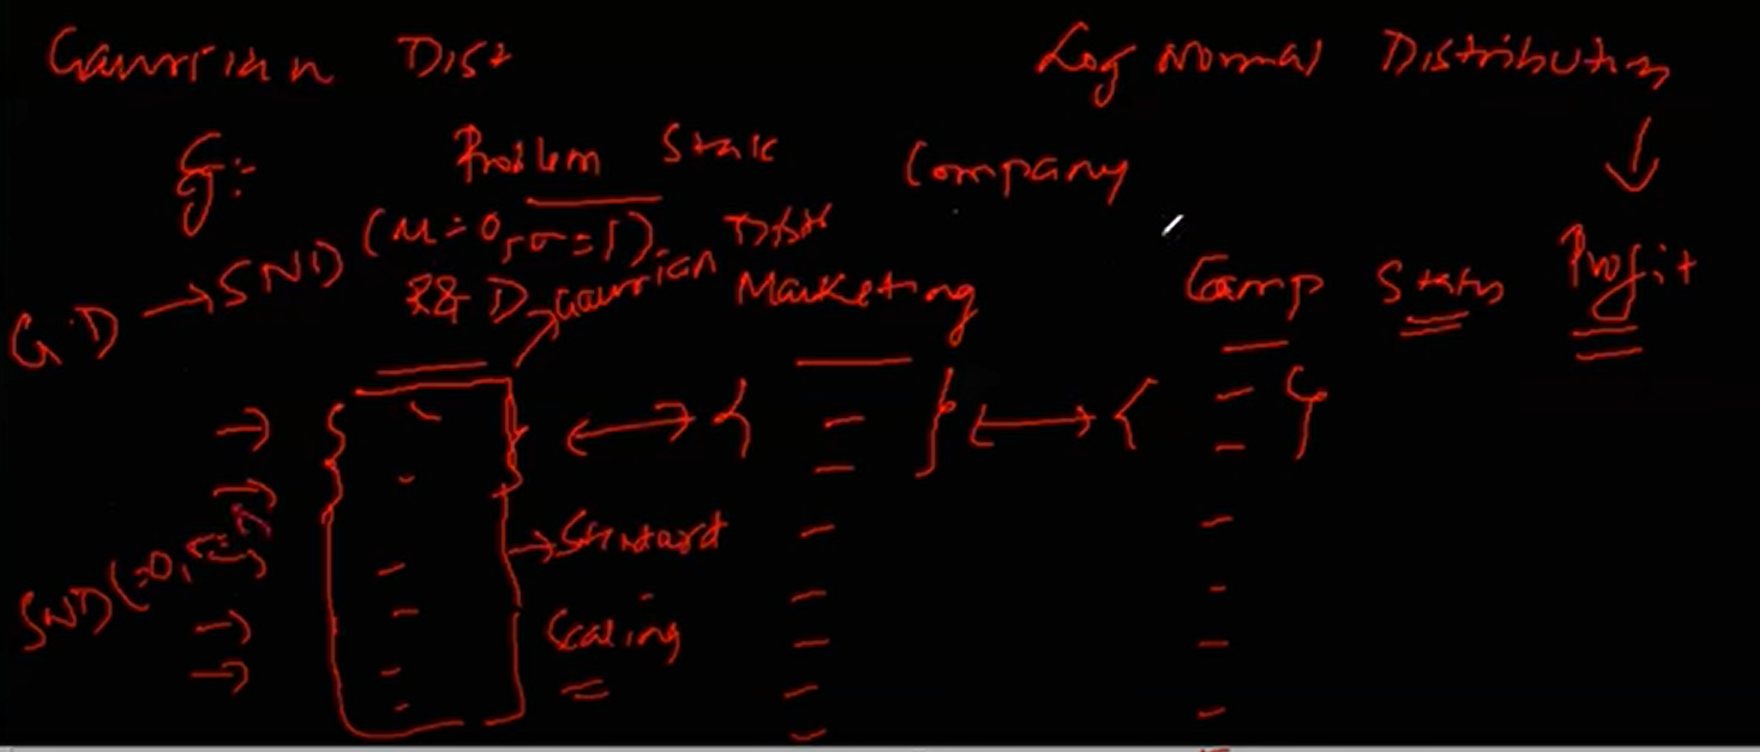 Gaussian Dist
Log Normal Distribution
Eg:-
Problem State
Company
GD → SND (μ=0, σ=1)
R&D → Gaussian Distr
Marketing
Camp
State
Profit
→ Standard
Scaling
SND (=0,